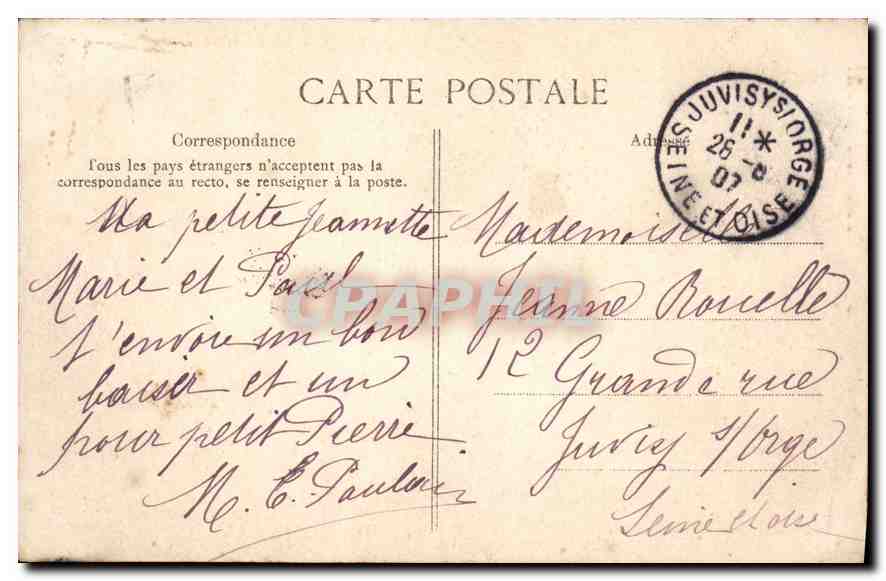 CARTE POSTALE
Correspondance
Tous les pays étrangers n'acceptent pas la
correspondance au recto, se renseigner à la poste.
Ma petite Jeannette
Marie et Paul
t'envoie un bon
baiser et un
pour petit Pierre
M. E. Poulain
Adresse
Mademoiselle
Jeanne Rouelle
12 Grande rue
Juvisy s/Orge
Seine et oise
JUVISY S/ORGE
11 *
26 -8
07
SEINE ET OISE
CPAPHIL